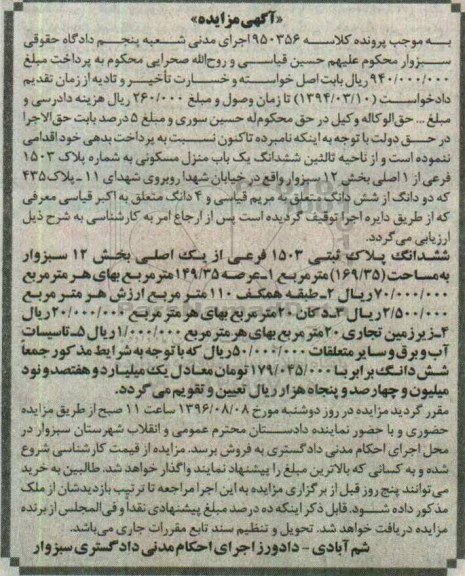 «آگهی مزایده»
به موجب پرونده کلاسه ۹۵۰۳۵۶ اجرای مدنی شعبه پنجم دادگاه حقوقی
سبزوار محکوم علیهم حسین قیاسی و روح‌الله صحرایی محکوم به پرداخت مبلغ
۹۴۰/۰۰۰/۰۰۰ ریال بابت اصل خواسته و خسارت تأخیر و تادیه از زمان تقدیم
دادخواست (۱۳۹۴/۰۳/۱۰) تا زمان وصول و مبلغ ۲۶۰/۰۰۰ ریال هزینه دادرسی و
مبلغ ... حق‌الوکاله وکیل در حق محکوم‌له حسین سوری و مبلغ ۵ درصد بابت حق‌الاجرا
در حق دولت با توجه به اینکه نامبرده تاکنون نسبت به پرداخت بدهی خود اقدامی
ننموده است و از ناحیه ثالثین ششدانگ یک باب منزل مسکونی به شماره پلاک ۱۵۰۳
فرعی از ۱ اصلی بخش ۱۲ سبزوار واقع در خیابان شهدا روبروی شهدای ۱۱ـ پلاک ۴۳۵
که دو دانگ از شش دانگ متعلق به مریم قیاسی و ۴ دانگ متعلق به اکبر قیاسی معرفی
که از طریق دایره اجرا توقیف گردیده است پس از ارجاع امر به کارشناسی به شرح ذیل
ارزیابی می‌گردد.
ششدانگ پلاک ثبتی ۱۵۰۳ فرعی از یک اصلی بخش ۱۲ سبزوار
به مساحت (۱۶۹/۳۵) متر مربع ۱ـ عرصه ۱۴۹/۳۵ متر مربع بهای هر متر مربع
۷۰/۰۰۰/۰۰۰ ریال ۲ـ طبقه همکف ۱۱۰ متر مربع ارزش هر متر مربع
۲/۵۰۰/۰۰۰ ریال ۳ـ دکان ۲۰ متر مربع بهای هر متر مربع ۲۰/۰۰۰/۰۰۰ ریال
۴ـ زیرزمین تجاری ۲۰ متر مربع بهای هر متر مربع ۱/۰۰۰/۰۰۰ ریال ۵ـ تاسیسات
آب و برق و سایر متعلقات ۵۰/۰۰۰/۰۰۰ ریال که با توجه به شرایط مذکور جمعاً
شش دانگ برابر با ۱۷۹/۰۴۵/۰۰۰ تومان معادل یک میلیارد و هفتصد و نود
میلیون و چهارصد و پنجاه هزار ریال تعیین و تقویم می گردد.
مقرر گردید مزایده در روز دوشنبه مورخ ۱۳۹۶/۰۸/۰۸ ساعت ۱۱ صبح از طریق مزایده
حضوری و با حضور نماینده دادستان محترم عمومی و انقلاب شهرستان سبزوار در
محل اجرای احکام مدنی دادگستری به فروش برسد. مزایده از قیمت کارشناسی شروع
شده و به کسانی که بالاترین مبلغ را پیشنهاد نمایند واگذار خواهد شد. طالبین به خرید
می‌توانند پنج روز قبل از برگزاری مزایده به این اجرا مراجعه تا ترتیب بازدیدشان از ملک
مذکور داده شود. قابل ذکر اینکه ده درصد مبلغ پیشنهادی نقداً و فی‌المجلس از برنده
مزایده دریافت خواهد شد. تحویل و تنظیم سند تابع مقررات جاری می‌باشد.
شم آبادی - دادورز اجرای احکام مدنی دادگستری سبزوار